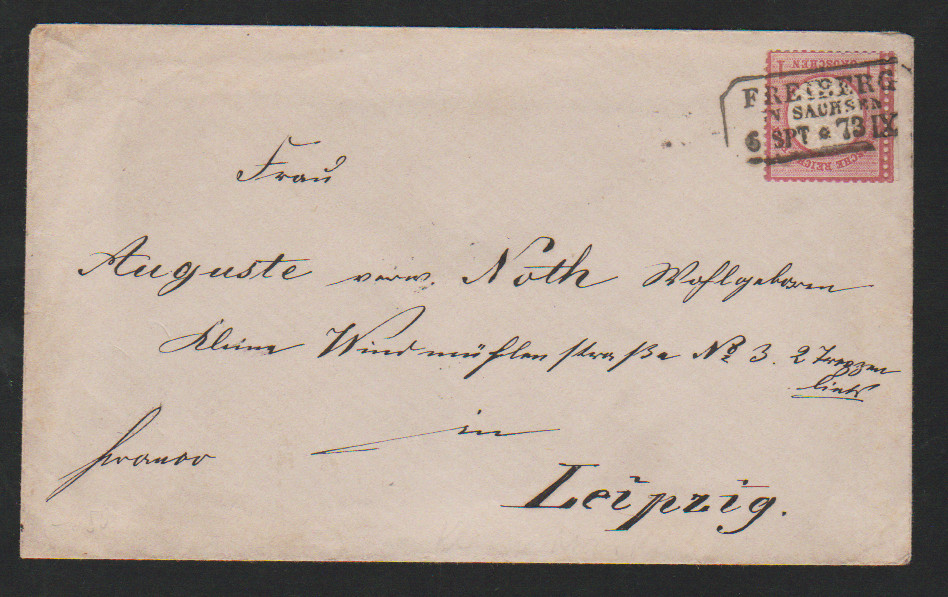 1 GROSCHEN 1
FREIBERG
IN SACHSEN
6 SPT * 73 IX
DEUTSCHE REICHS
Frau
Auguste verw. Noth Wohlgeboren
Kleine Windmühlenstraße No 3. 2 Treppen
links
franco
in
Leipzig.